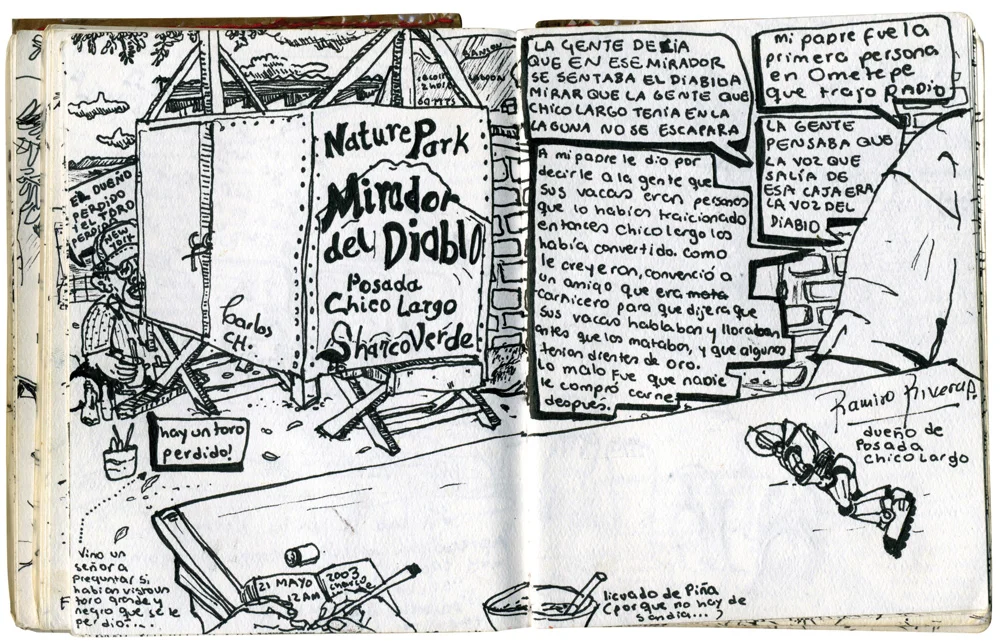 LA GENTE DECÍA
QUE EN ESE MIRADOR
SE SENTABA EL DIABLO A
MIRAR QUE LA GENTE QUE
CHICO LARGO TENÍA EN LA
LAGUNA NO SE ESCAPARA
mi papre fue la
primera persona
en Ometepe
que trajo RADIO
LA GENTE
PENSABA QUE
LA VOZ QUE
SALÍA DE
ESA CAJA ERA
LA VOZ DEL
DIABLO
A mi papre le dio por
decirle a la gente que
sus vacas eran personas
que lo habían traicionado
entonces Chico Largo los
había convertido. como
le creyeron, convenció a
un amigo que era mata
carnicero para que dijera que
sus vacas hablaban y lloraban
antes que los mataban, y que algunos
tenían dientes de oro.
Lo malo fue que nadie
le compró carne
después.
Nature Park
Mirador
del Diablo
Posada
Chico Largo
Sharco Verde
Carlos
CH.
EL DUEÑO
PERDIDO
Y EL TORO
PERDIDO
NEW
YORK
hay un toro
perdido!
Vino un
señor a
preguntar si
habían visto un
toro grande y
negro que se le
perdió...
21 MAYO
12 AM
2003
Charco
licuado de Piña
(porque no hay de
sandía...)
Ramiro Rivera A.
dueño de
Posada
Chico Largo